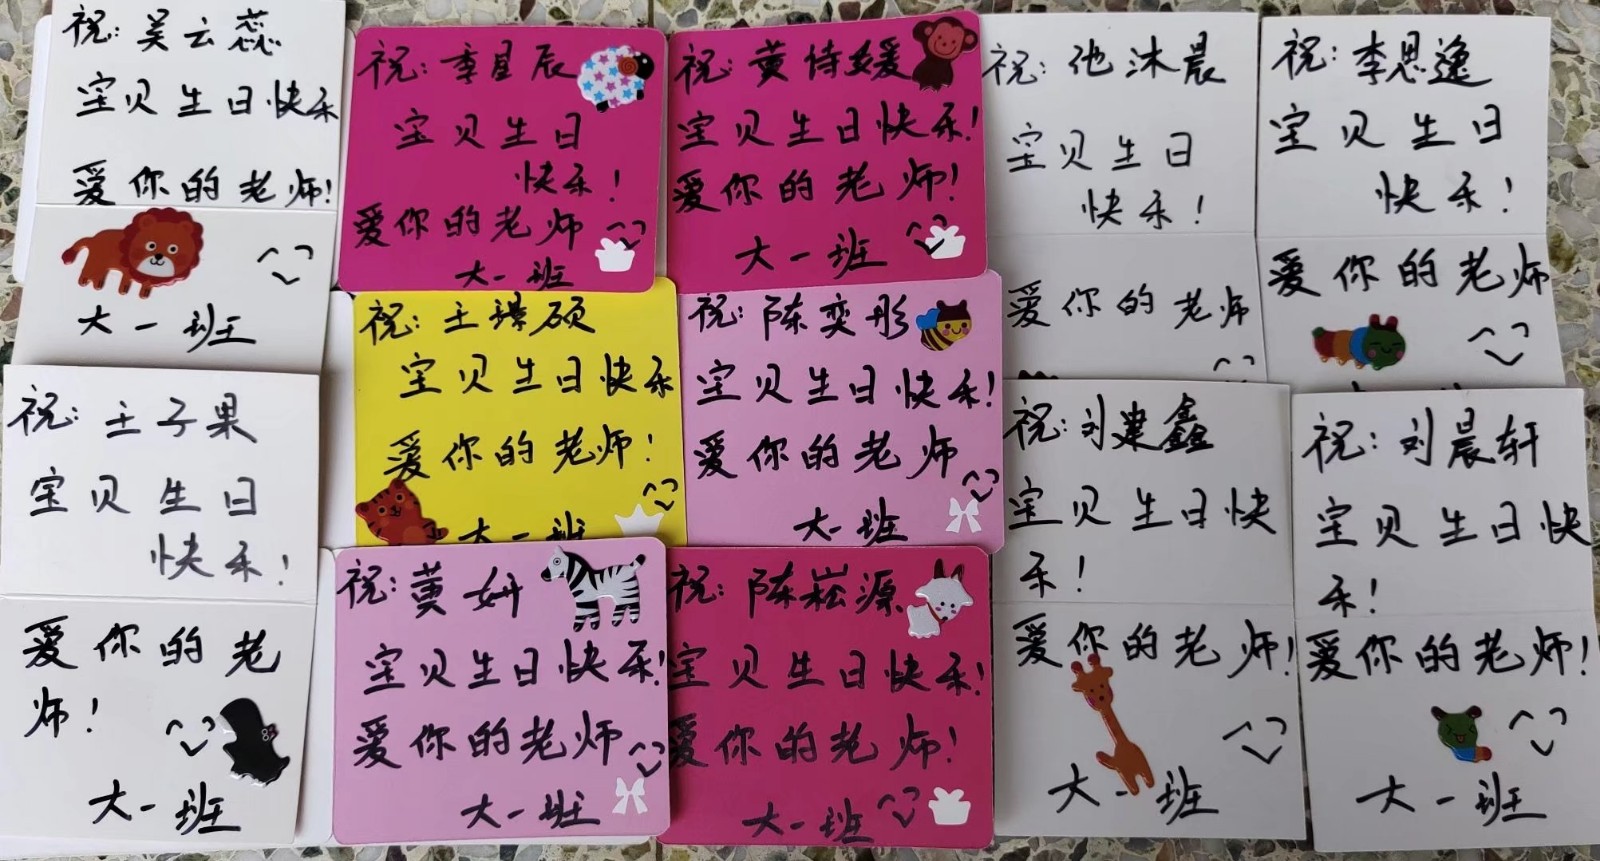 祝：吴云蕊
宝贝生日快乐
爱你的老师！
大一班
祝：季星辰
宝贝生日
快乐！
爱你的老师
大一班
祝：黄恃媛
宝贝生日快乐！
爱你的老师！
大一班
祝：池沐晨
宝贝生日
快乐！
爱你的老师
祝：李思逸
宝贝生日
快乐！
爱你的老师
祝：王子果
宝贝生日
快乐！
爱你的老
师！
大一班
祝：王璟硕
宝贝生日快乐
爱你的老师！
大一班
祝：陈奕彤
宝贝生日快乐！
爱你的老师
大一班
祝：刘建鑫
宝贝生日快
乐！
爱你的老师！
大一班
祝：刘晨轩
宝贝生日快
乐！
爱你的老师！
大一班
祝：黄妍
宝贝生日快乐！
爱你的老师
大一班
祝：陈崧源
宝贝生日快乐！
爱你的老师！
大一班